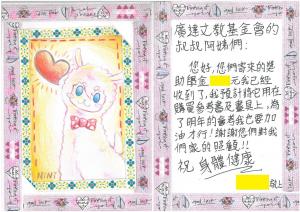 NINI
廣達文教基金會的
叔叔阿姨們：
您好，您們寄來的獎
助學金 元我已經
收到了，我預計將它用在
購買參考書及書具上，為
了明年的會考我也要加
油才行！謝謝您們對我
們家的照顧！！
祝 身體健康
敬上